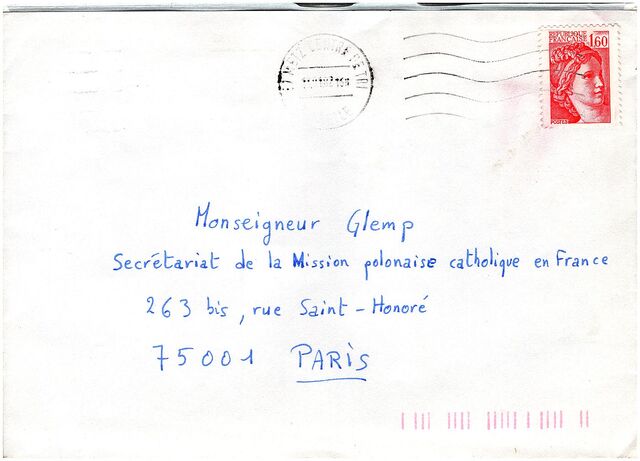 REPUBLIQUE
FRANCAISE 1,60
POSTES
Monseigneur Glemp
Secrétariat de la Mission polonaise catholique en France
263 bis, rue Saint-Honoré
75001 PARIS